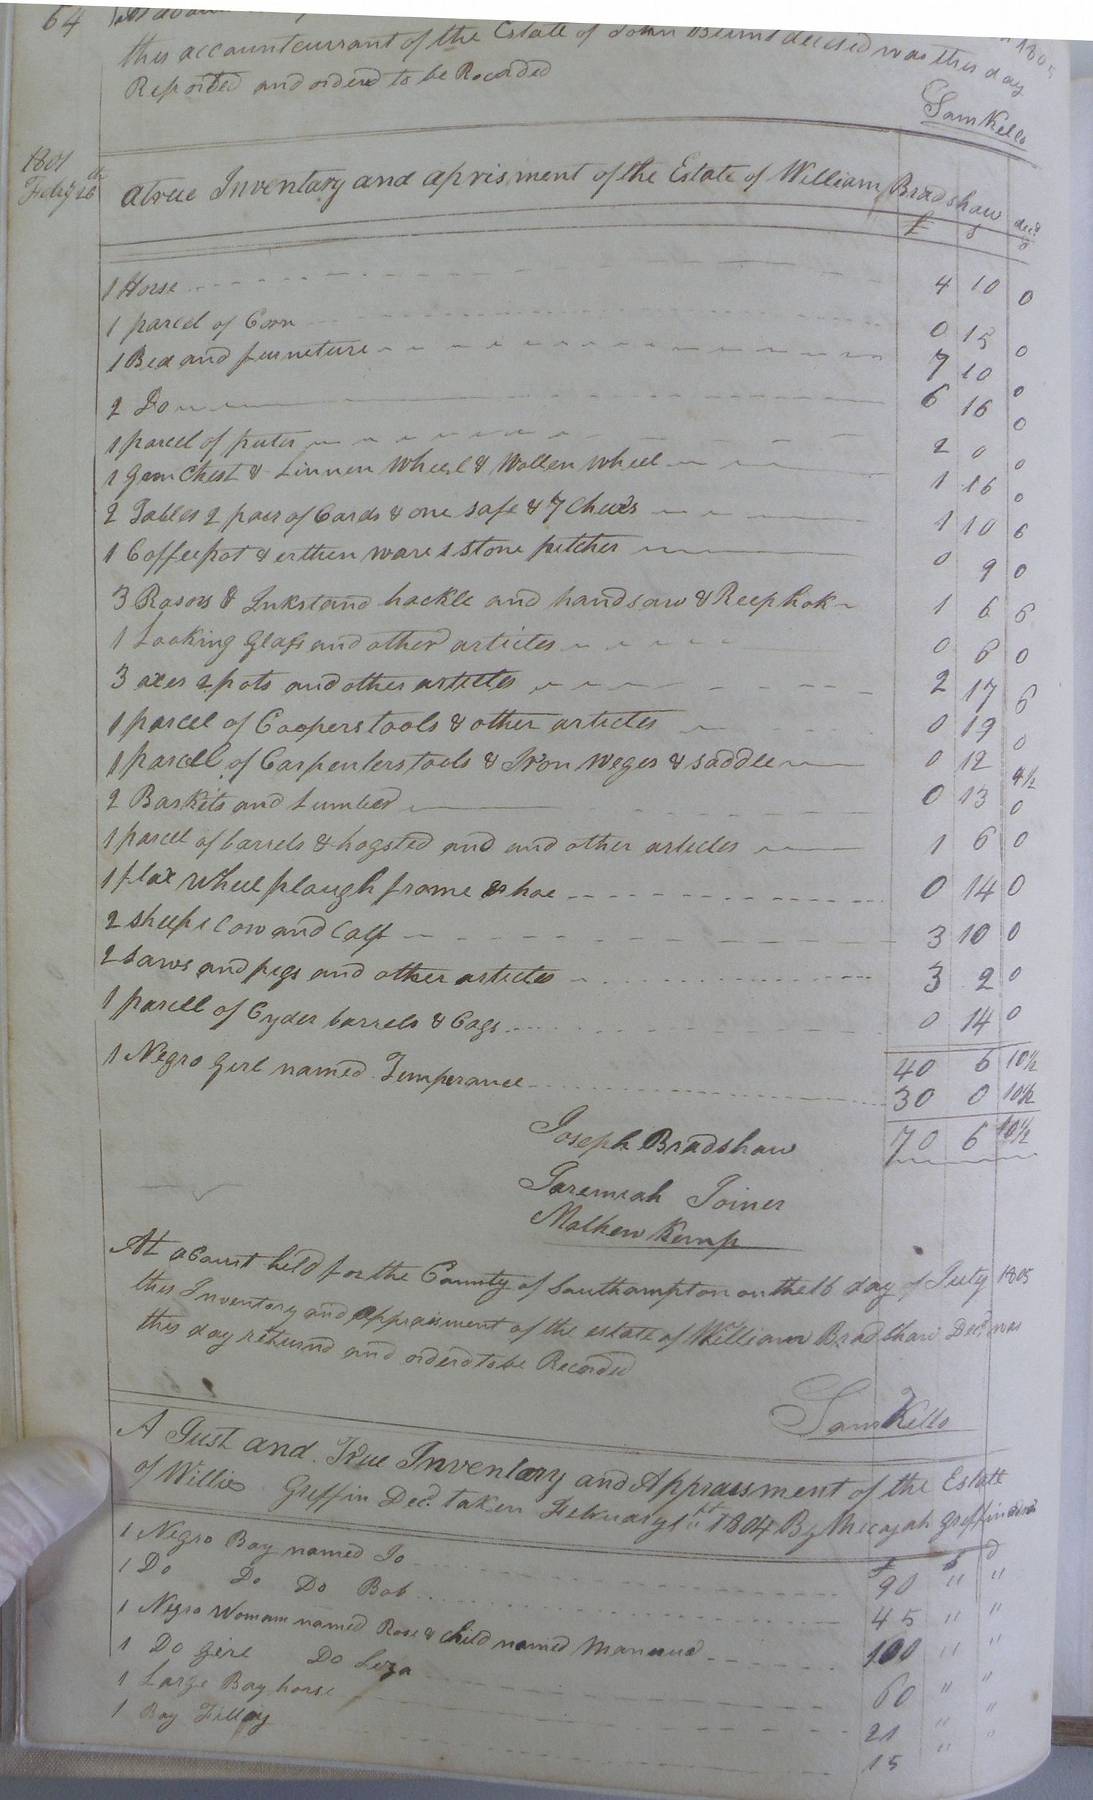 64
this account currant of the Estate of John deceised was this day
Reported and ordered to be Recorded
Sam Kello
1801
Feby 26th
a true Inventary and aprisment of the Estate of William Bradshaw decd
£ S D
1 Horse 4 10 0
1 parcel of Corn 0 15 0
1 Bed and furneture 7 10 0
2 Do 6 16 0
1 parcel of puter 2 0 0
1 Chest & Linnen Wheel & Wollen wheel 1 16 0
2 Tables 2 pair of Cards & one safe & 7 Cheirs 1 10 6
1 Coffeepot & erthen ware 1 stone pitcher 0 9 0
3 Rasors & Inkstand hackle and handsaw & Reephok 1 6 6
1 Looking Glass and other articles 0 6 0
3 axes 2 pots and other articles 2 17 6
1 parcel of Coopers tools & other articles 0 19 0
1 parcell of Carpenters tools & Iron weges & saddle 0 12 4½
2 Baskits and Lumber 0 13 0
1 parcel of barrels & hogsted and and other articles 1 6 0
1 flax wheel plough frame & hoe 0 14 0
2 sheep 1 Cow and Calf 3 10 0
2 saws and pigs and other articles 3 2 0
1 parcell of Cyder barrels & Cags 0 14 0
40 6 10½
1 Negro Girl named Temperance 30 0 10½
70 6 10½
Joseph Bradshaw
Jaremiah Joiner
Mathew Kemp
At a Court held for the County of Southampton on the 16 day of July 1805
this Inventory and appraisment of the estate of William Bradshaw Decd was
this day returnd and orderd to be Recorded
Sam Kello
A Just and True Inventory and Appraisment of the Estate
of Willie Griffin Decd taken February 1st 1804 By Micajah Griffin
£ S D
1 Negro Boy named Jo 90 " "
1 Do Do Do Bob 45 " "
1 Negro Womam named Rose & Child named 100 " "
1 Do Girl Do Liza 60 " "
1 Large Bay horse 21 " "
1 Bay Filley 15 " "